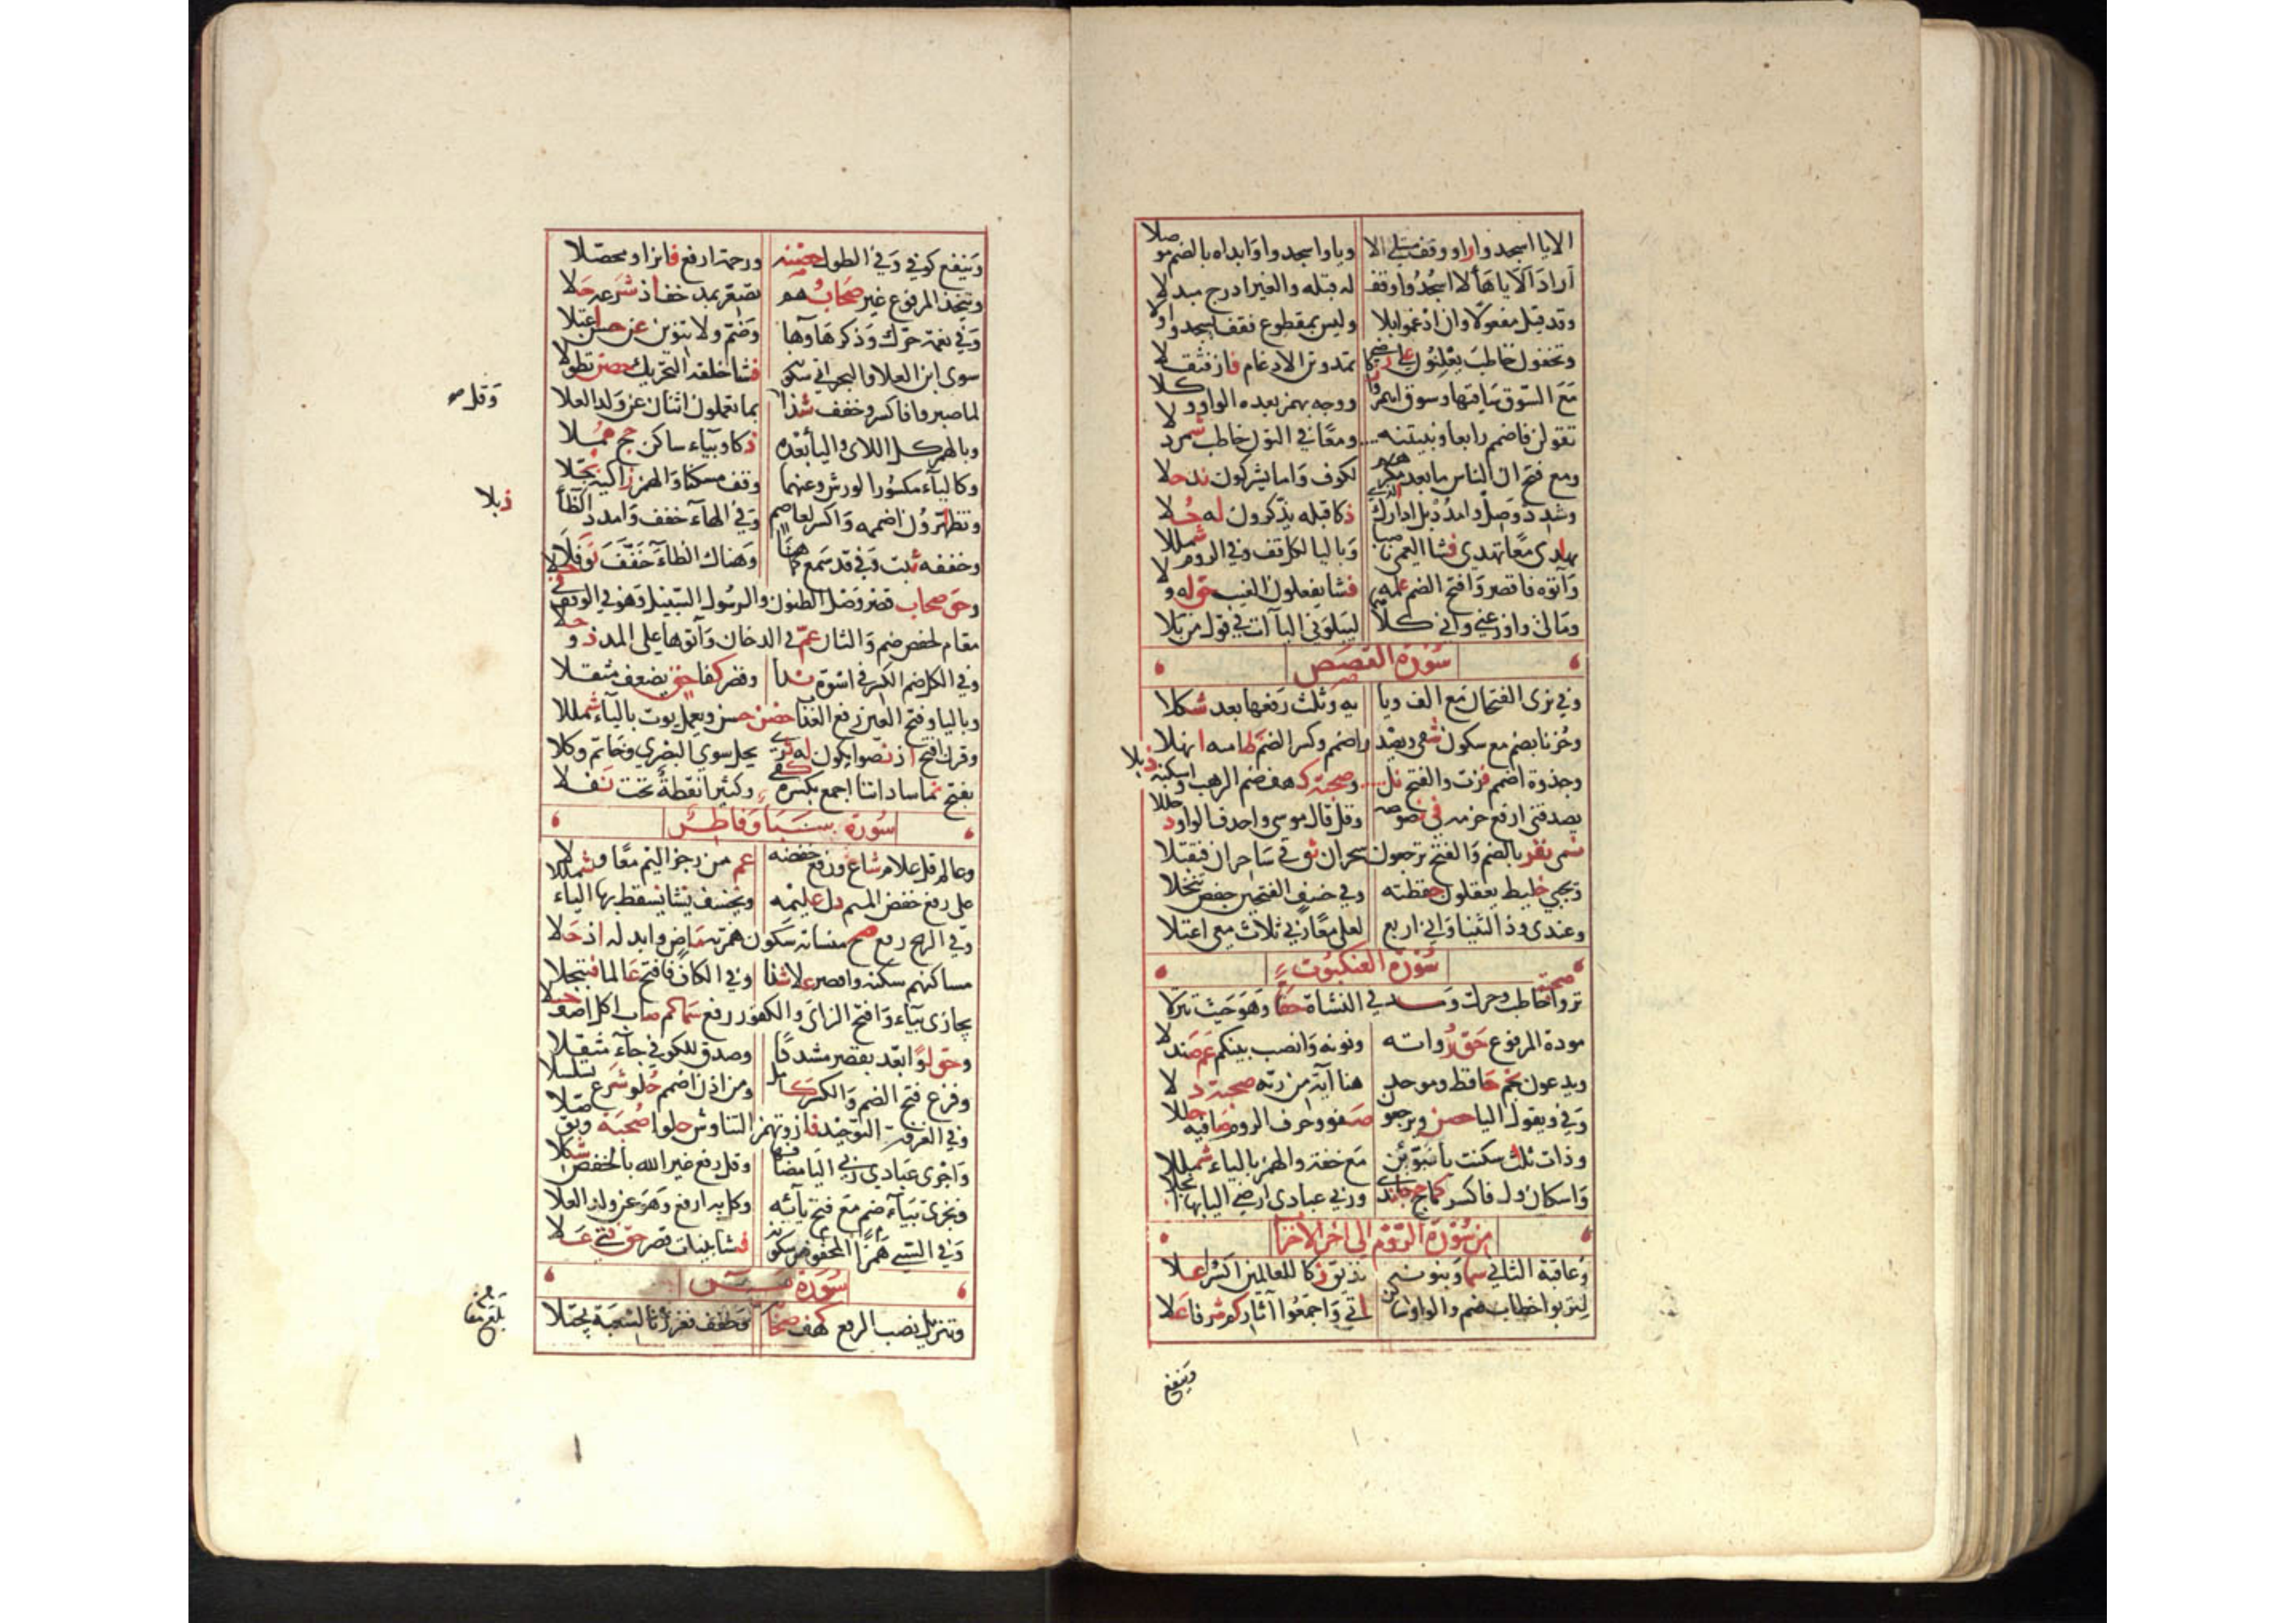 الا يا اسجدوا راو وقف مبتلى الا ويا واسجدوا وابداه بالضم موصلا
اراد الا يا هاؤلا اسجدوا وقف له قبله والغير ادرج مبدلا
وقد قيل مفعولا وان ادغموا بلا وليس بمقطوع فقف يسجدوا ولا
وتخفون خاطب يعلنون على رضى تمدونن الادغام فاز فثقلا
مع السوق ساقيها وسوق اهمزوا زكا ووجه بهمز بعده الواو وكلا
نقولن فاضمم رابعا ونبيتنه ومعا في النون خاطب شمردلا
ومع فتح ان الناس ما بعد مكرهم لكوف واما يشركون ند حلا
وشدد وصل وامدد بل ادارك الذي ذكا قبله يذكرون له حلا
بهادي معا تهدي فشا العمي ناصبا وباليا لكل قف وفي الروم شمللا
وآتوه فاقصر وافتح الضم علمه فشا يفعلون الغيب حق له ولا
ومالي واوزعني واني كلا ليبلوني اليآات في قول من بلا
سورة القصص
وفي نرى الفتحان مع الف ويا يه وثلث رفعها بعد شكلا
وحزنا بضم مع سكون شفى ويصدر اضمم وكسر الضم ظاميه انهلا
وجذوة اضمم فزت والفتح نل وصحبة كهف ضم الرهب واسكنه ذبلا
يصدقني ارفع جزمه في نصوصه وقل قال موسى واحذف الواو دخللا
نمى نفر بالضم والفتح يرجعون سحران ثق في ساحران فتقبلا
ويجبى خليط يعقلون حفظته وفي خسف الفتحين حفص تنخلا
وعندي وذو الثنيا واني اربع لعلي معا ربي ثلاث معي اعتلا
سورة العنكبوت
تروا صحبة خاطب وحرك ومد في النشاة حقا وهو حيث تنزلا
مودة المرفوع حق رواته ونونه وانصب بينكم عم صندلا
ويدعون نجم حافظ وموحد هنا آية من ربه صحبة دلا
وفي ونقول اليا حصن ويرجعون صفو وحرف الروم صافيه حللا
وذات ثلث سكنت با نبوئن مع خفه والهمز بالياء شمللا
واسكان ول فاكسر كما حج جا ندى وربي عبادي ارضي اليا بها انجلا
من سورة الروم الى اخر الاحزاب
وعاقبة الثاني سما وبنونه نذيق زكا للعالمين اكسروا علا
لتربوا خطاب ضم والواو ساكن اتى واجمعوا آثار كم شرفا علا
وينفع
وينفع كوفي وفي الطول حصنه ورحمة ارفع فائزا ومحصلا
ويتخذ المرفوع غير صحابهم تصعر بمد خف اذ شرعه حلا
وفي نعمة حرك وذكر هاوها وضم ولا تنوين عن حسن اعتلا
سوى ابن العلا والبحر اخفي سكونه فشا خلقه التحريك حصن تطولا
لما صبروا فاكسر وخفف شذا وقل بما تعملون اثنان عن ولد العلا
وبالهمز كل اللاي واليا بعده ذكا وبياء ساكن حج هملا
وكاليآء مكسورا لورش وعنهما وقف مسكنا والهمز زاكيه بجلا
وتظاهرون اضممه واكسر لعاصم وفي الهآء خفف وامدد الظا ذبلا
وخففه ثبت وفي قد سمع كما هنا وهناك الظآء خفف نوفلا
وحق صحاب قصر وصل الظنون والرسول السبيل وهو في الوقف في حلا
مقام لحفص ضم والثان عم في الدخان وآتوها على المد ذو حلا
وفي الكل ضم الكسر في اسوة ندا وقصر كفا حق يضعف مثقلا
وباليا وفتح العين رفع العذاب حصن حسن ويعمل يوت بالياء شمللا
وقرن افتح اذ نصوا يكون له ثوى يحل سوى البصري وخاتم وكلا
بفتح نما ساداتنا اجمع بكسرة كفى وكثيرا نقطة تحت نفلا
سورة سبا وفاطر
وعالم قل علام شاع ورفع خفضه عم من رجز اليم معا ولا
على رفع خفض الميم دل عليمه ويخسف يشا يسقط بها الياء شمللا
وفي الريح رفع صح منساته سكون همزته ماض وابدله اذ حلا
مساكنهم سكنه واقصر على شذا وفي الكاف فافتح عالما فتبجلا
يجازى بياء وافتح الزاي والكفور رفع سما كم صاب اكل اضف حلا
وحق لوا باعد بقصر مشددا وصدق للكوفي جآء مثقلا
وفزع فتح الضم والكسر كامل ومن اذن اضمم حلو شرع تسلسلا
وفي الغرفة التوحيد فاز ويهمز التناوش حلوا صحبة وتوصلا
واجرى عبادي ربي اليا مضافها وقل رفع غير الله بالخفض شكلا
ونجزي بياء ضم مع فتح زايه وكل به ارفع وهو عن ولد العلا
وفي السيئ همزا المخفوض سكونه فشا بينات قصر حق فتى علا
سورة يس
وتنزيل نصب الرفع كهف صحابه وخفف فعززنا لشعبة محملا
وقل صح
ذبلا
بلغ مقابلة